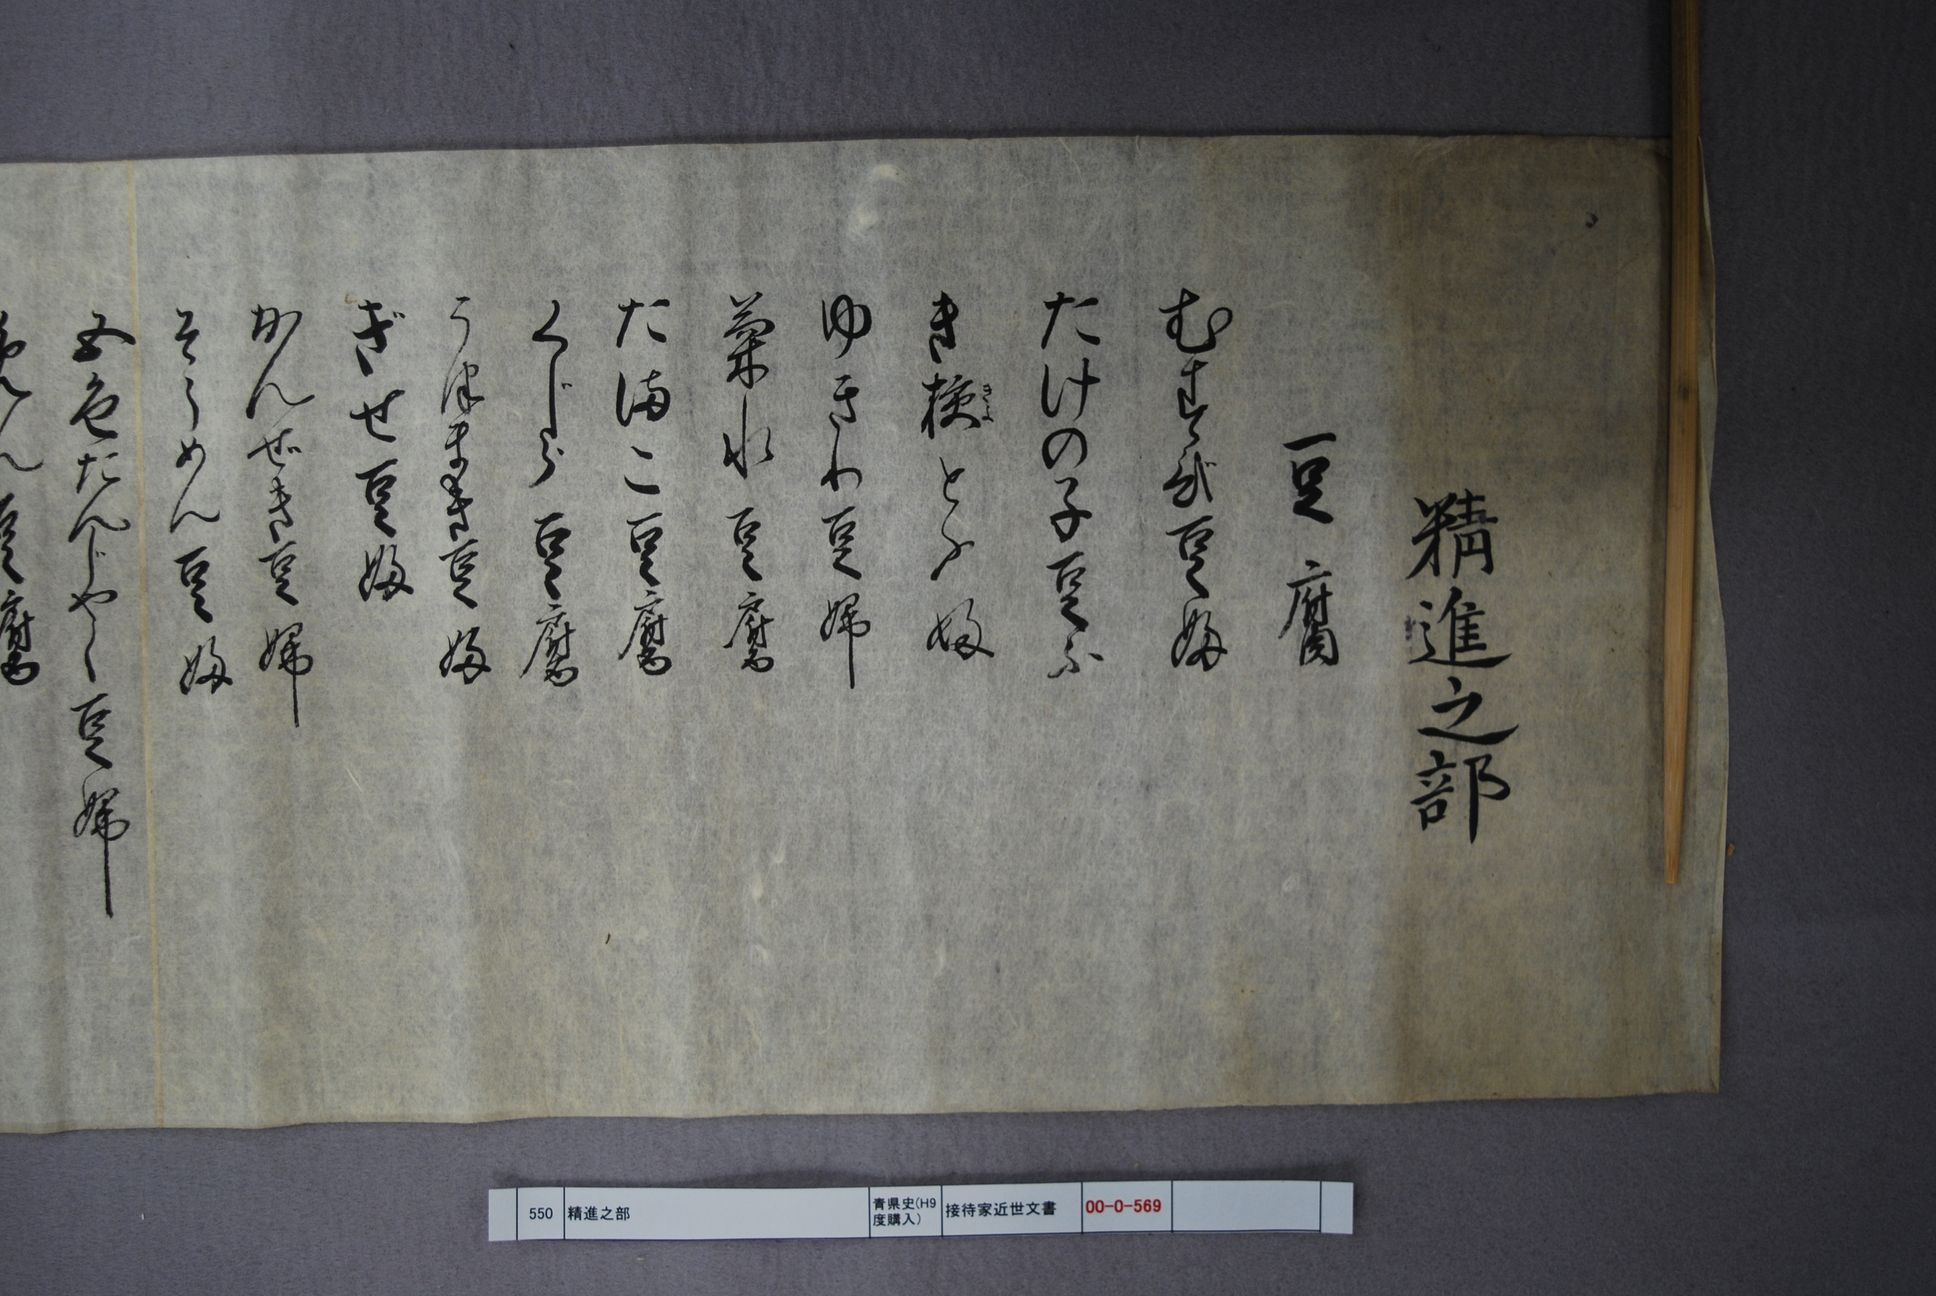 精進之部
豆腐
むすび豆婦
たけの子豆ふ
き とう婦
ゆきわ豆婦
菊水豆腐
たまこ豆腐
くじら豆腐
うつまき豆婦
ぎせ豆婦
かんぜき豆婦
そうめん豆婦
五色たんじやく豆婦
豆腐
550 精進之部 青県史(H9度購入) 接待家近世文書 00-0-569